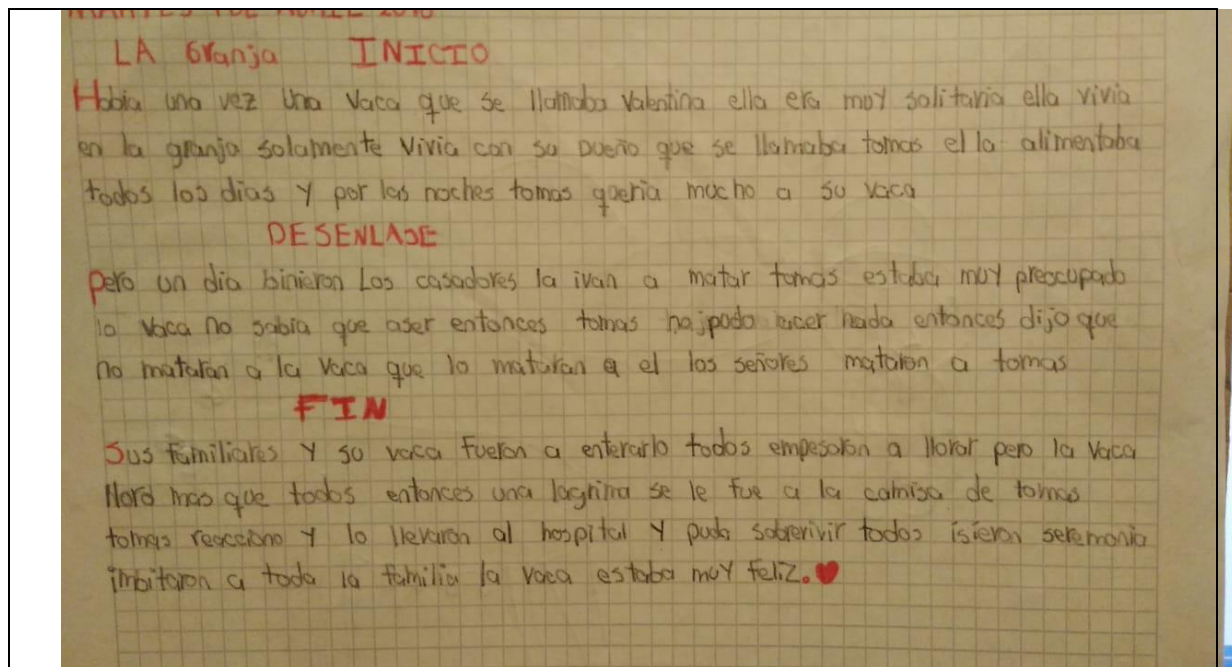 LA Granja INICIO
Habia una vez una vaca que se llamaba Valentina ella era muy solitaria ella vivia
en la granja solamente vivia con su Dueño que se llamaba tomas el la alimentaba
todos los dias y por las noches tomas queria mucho a su vaca
DESENLASE
Pero un dia binieron Los casadores la ivan a matar tomas estaba muy preocupado
la vaca no sabia que aser entonces tomas no pudo hacer nada entonces dijo que
no mataran a la vaca que lo mataran a el los señores mataron a tomas
FIN
Sus familiares y su vaca fueron a enterarlo todos empesaron a llorar pero la vaca
lloro mas que todos entonces una lagrima se le fue a la camisa de tomas
tomas reacciono y lo llevaron al hospital y pudo sobrerivir todos isieron seremonia
imbitaron a toda la familia la vaca estaba muy feliz.